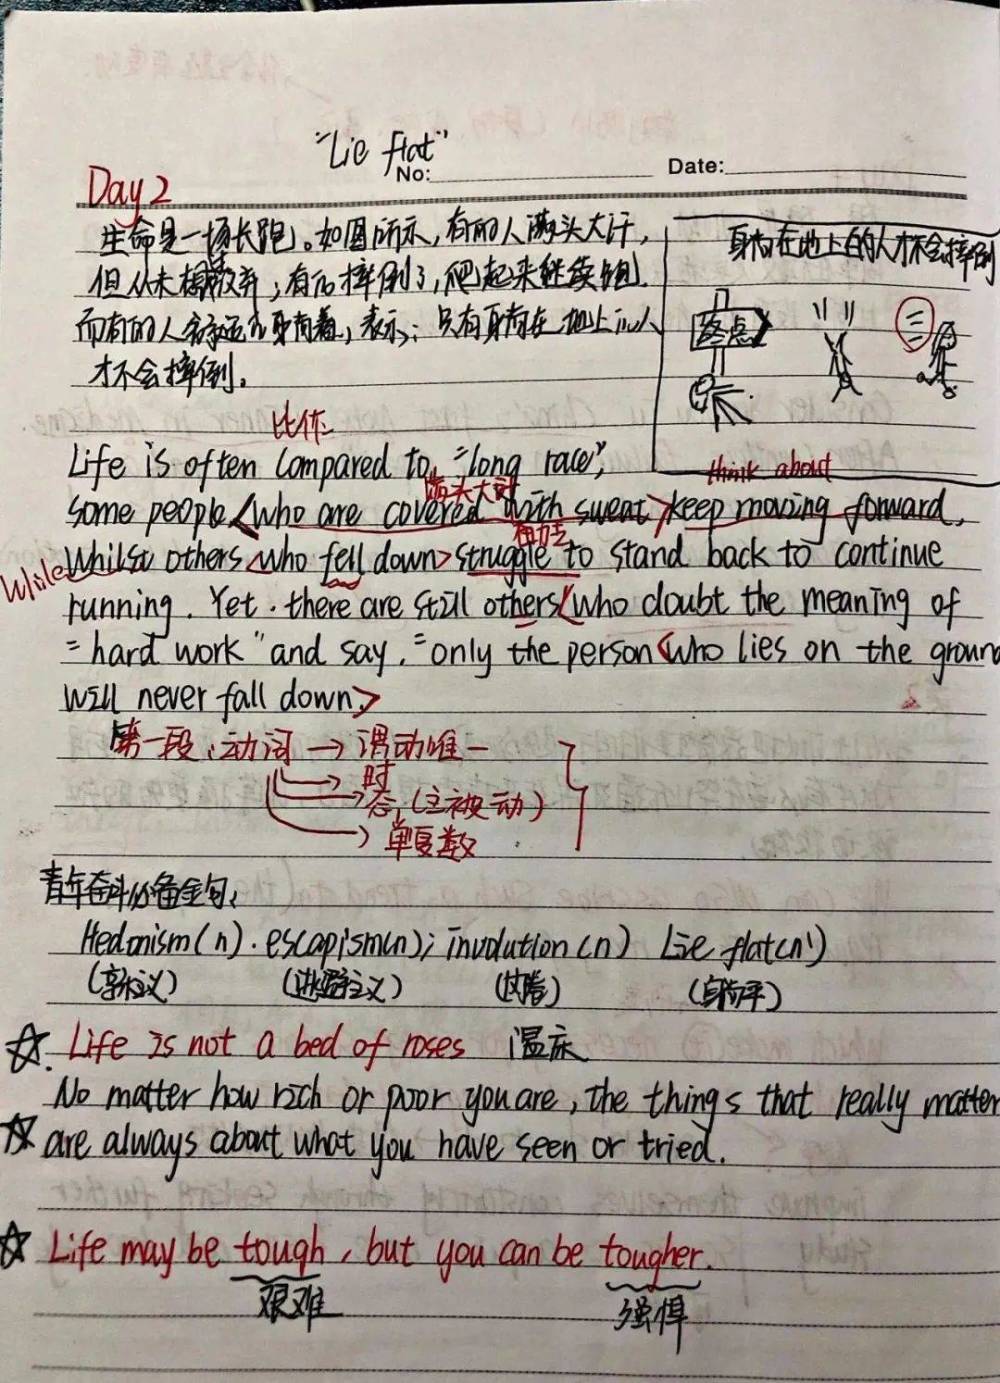 "Lie flat"
No:
Date:
Day 2
生命是一场长跑。如图所示,有的人满头大汗,
但从未想放弃,有的摔倒了,爬起来继续跑.
而有的人躺着,表示:只有躺在地上的人
才不会摔倒。
躺在地上的人才不会摔倒
终点
比作
Life is often compared to "long race",
满头大汗
think about
some people <who are covered with sweat> keep moving forward,
挣扎去
While
Whilst others <who fell down> struggle to stand back to continue
running. Yet. there are still others <who doubt the meaning of
"hard work" and say. "only the person <who lies on the ground
will never fall down>
第一段:动词→谓动唯一
→时
→态,(主被动)
→单复数
青年奋斗必备金句:
Hedonism(n). escapism(n); involution(n) Lie flat(n')
(享乐主义) (逃避主义) (内卷) (躺平)
☆. Life is not a bed of roses 温床
No matter how rich or poor you are, the things that really matter
☆ are always about what you have seen or tried.
☆ Life may be tough, but you can be tougher.
艰难
强悍